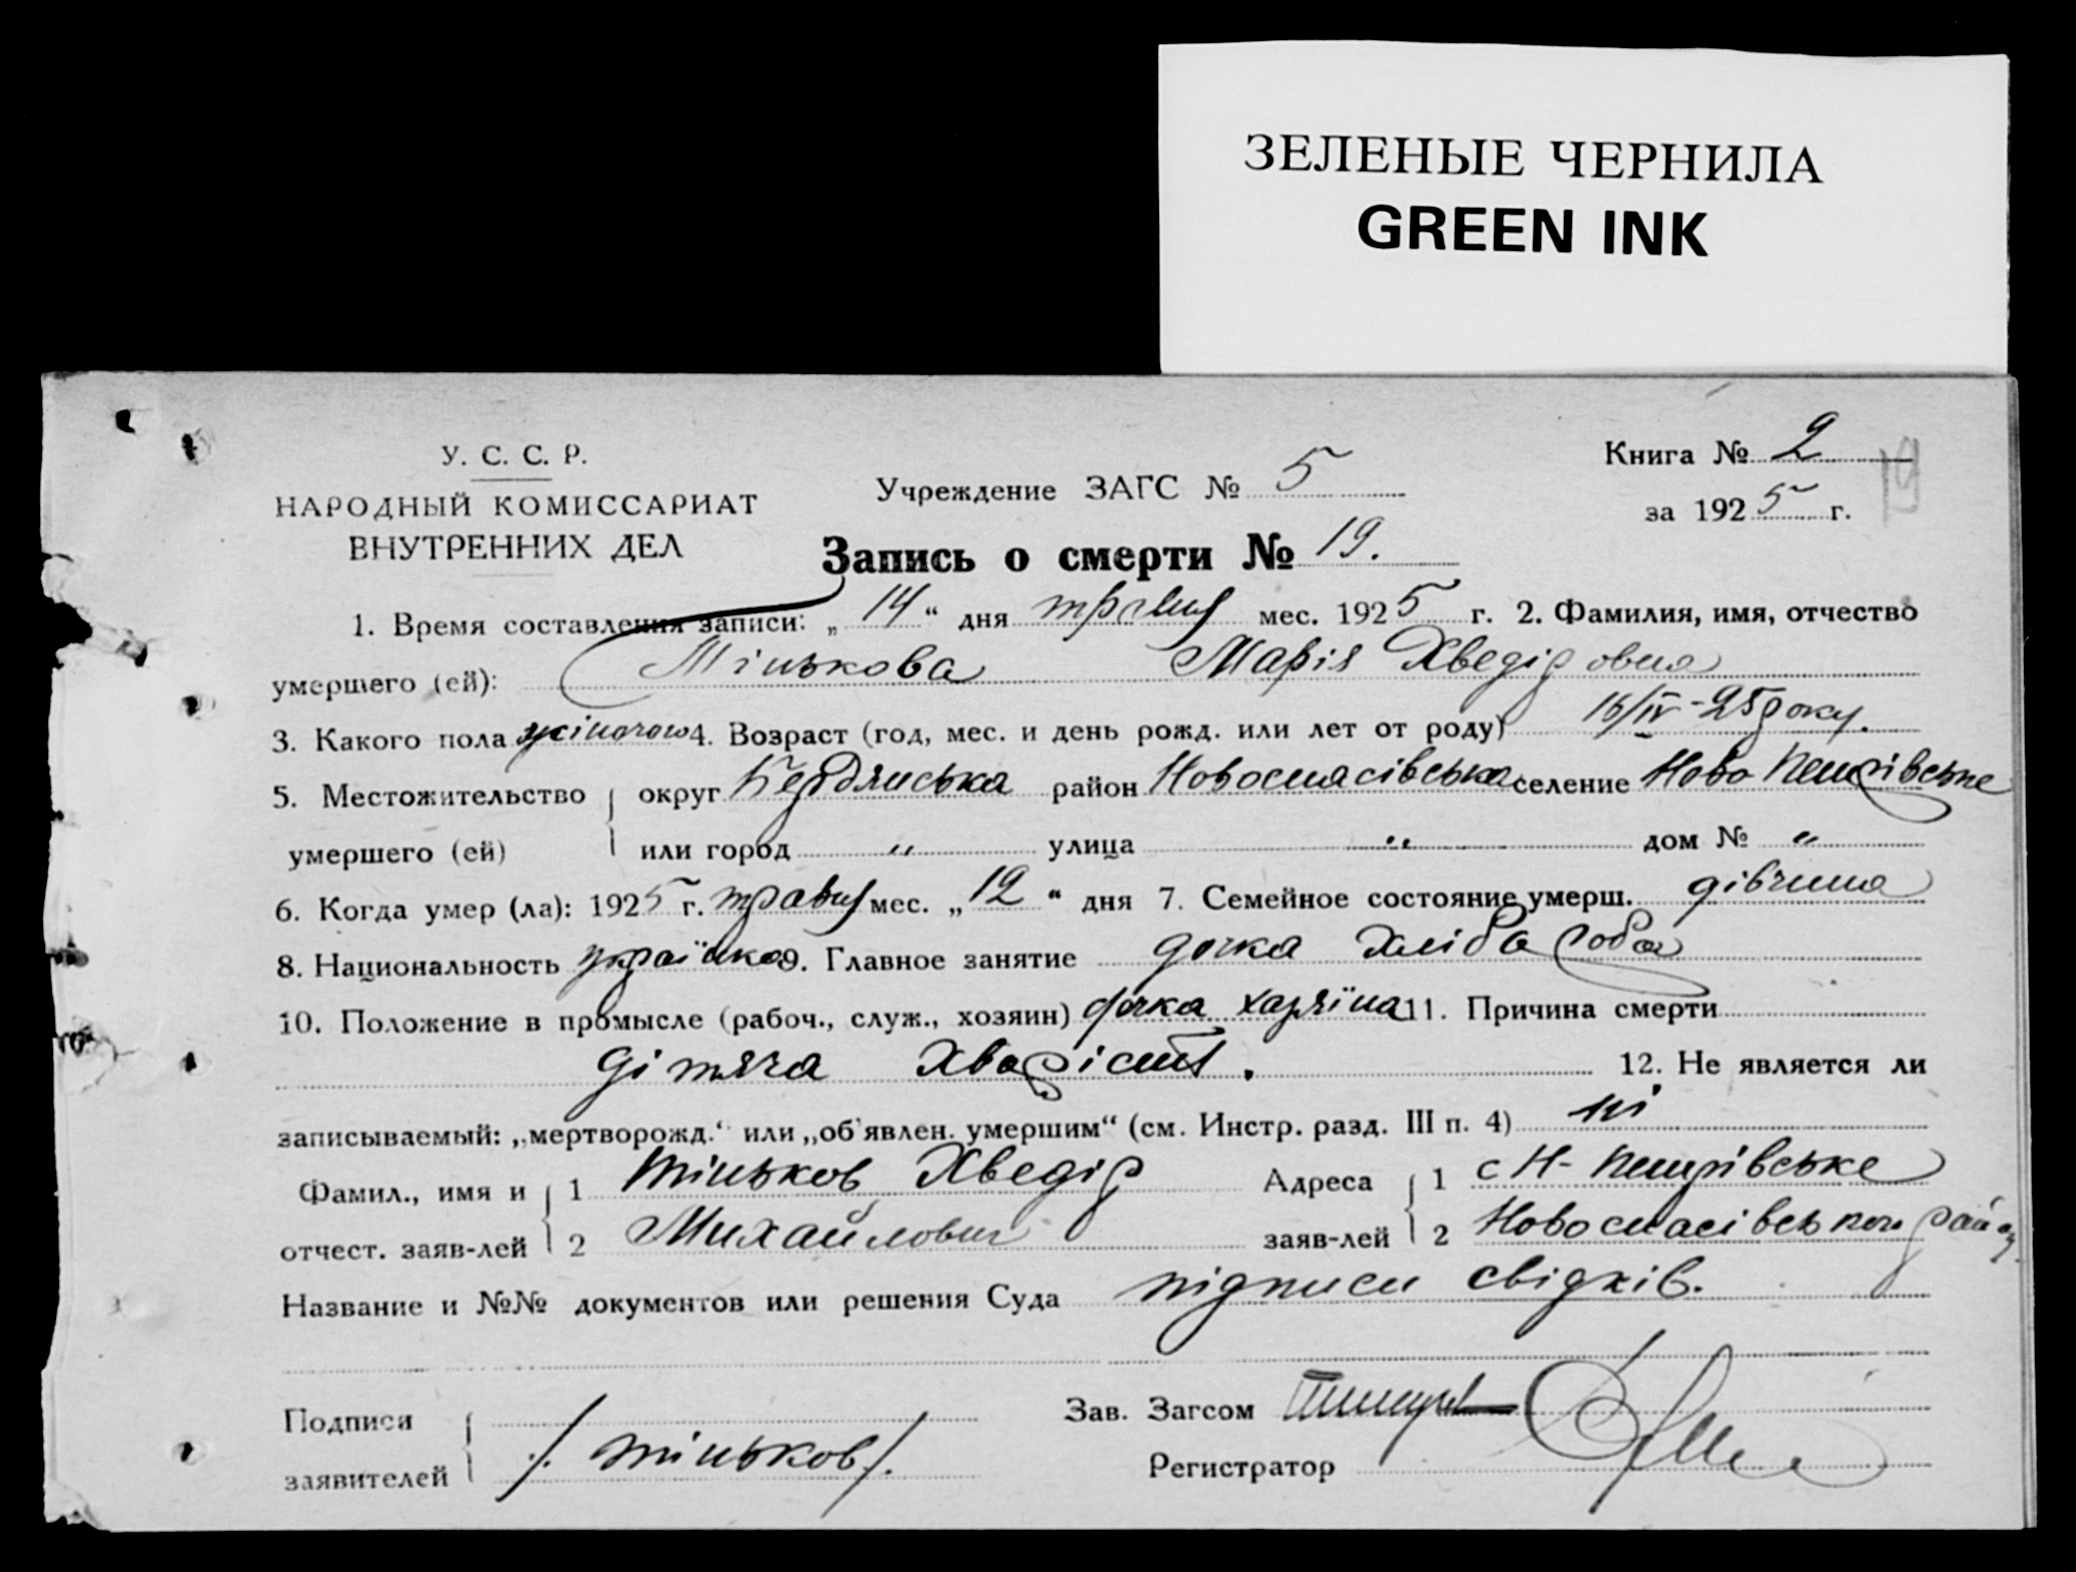 ЗЕЛЕНЫЕ ЧЕРНИЛА
GREEN INK
У. С. С. Р.
НАРОДНЫЙ КОМИССАРИАТ
ВНУТРЕННИХ ДЕЛ
Учреждение ЗАГС № 5
Книга № 2
за 1925 г.
Запись о смерти № 19.
1. Время составления записи: „14“ дня травня мес. 1925 г. 2. Фамилия, имя, отчество
умершего (ей): Тінькова Марія Хведіровна
3. Какого пола жіночого 4. Возраст (год, мес. и день рожд. или лет от роду) 16/IV-25 року.
5. Местожительство умершего (ей) округ Бердянська район Новоспасівська селение Ново Петрівське
или город " улица " дом № "
6. Когда умер (ла): 1925 г. травня мес. „12“ дня 7. Семейное состояние умерш. дівчина
8. Национальность українка 9. Главное занятие дочка хлібароба
10. Положение в промысле (рабоч., служ., хозяин) дочка хазяїна 11. Причина смерти
дітяча хворість. 12. Не является ли
записываемый: „мертворожд.“ или „об'явлен. умершим“ (см. Инстр. разд. III п. 4) ні
Фамил., имя и отчест. заяв-лей 1 Тіньков Хведір Адреса заяв-лей 1 с Н-Петрівське
2 Михайлович 2 Новоспасівського району
Название и №№ документов или решения Суда підписи свідків.
Подписи заявителей /. Тіньков /.
Зав. Загсом
Регистратор